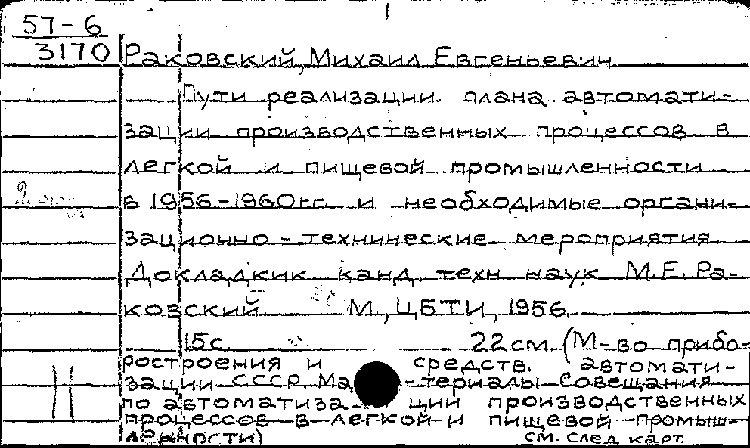 57-6
3170
Раковский, Михаил Евгеньевич
Пути реализации плана автомати-
зации производственных процессов в
легкой и пищевой промышленности
в 1956-1960 гг. и необходимые органи-
зационно-технические мероприятия
Докладкик канд. техн. наук М.Е. Ра-
ковский М., ЦБТИ, 1956.
15 с. 22 см. (М-во прибо-
ростроения и средств. автомати-
зации СССР. Ма-териалы Совещания
по автоматиза ции производственных
процессов в легкой и пищевой промыш-
ленности)
см. след карт.